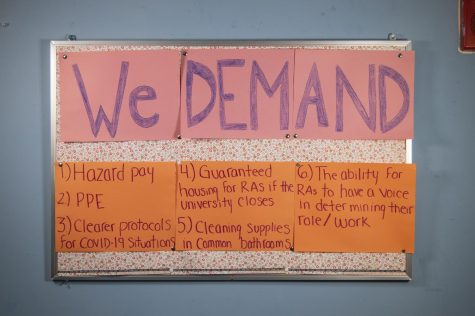 We DEMAND
1) Hazard pay
2) PPE
3) Clearer protocols
for COVID-19 situations
4) Guaranteed
housing for RAs if the
university closes
5) Cleaning supplies
in Common bathrooms
6) The ability for
RAs to have a voice
in determining their
role/work